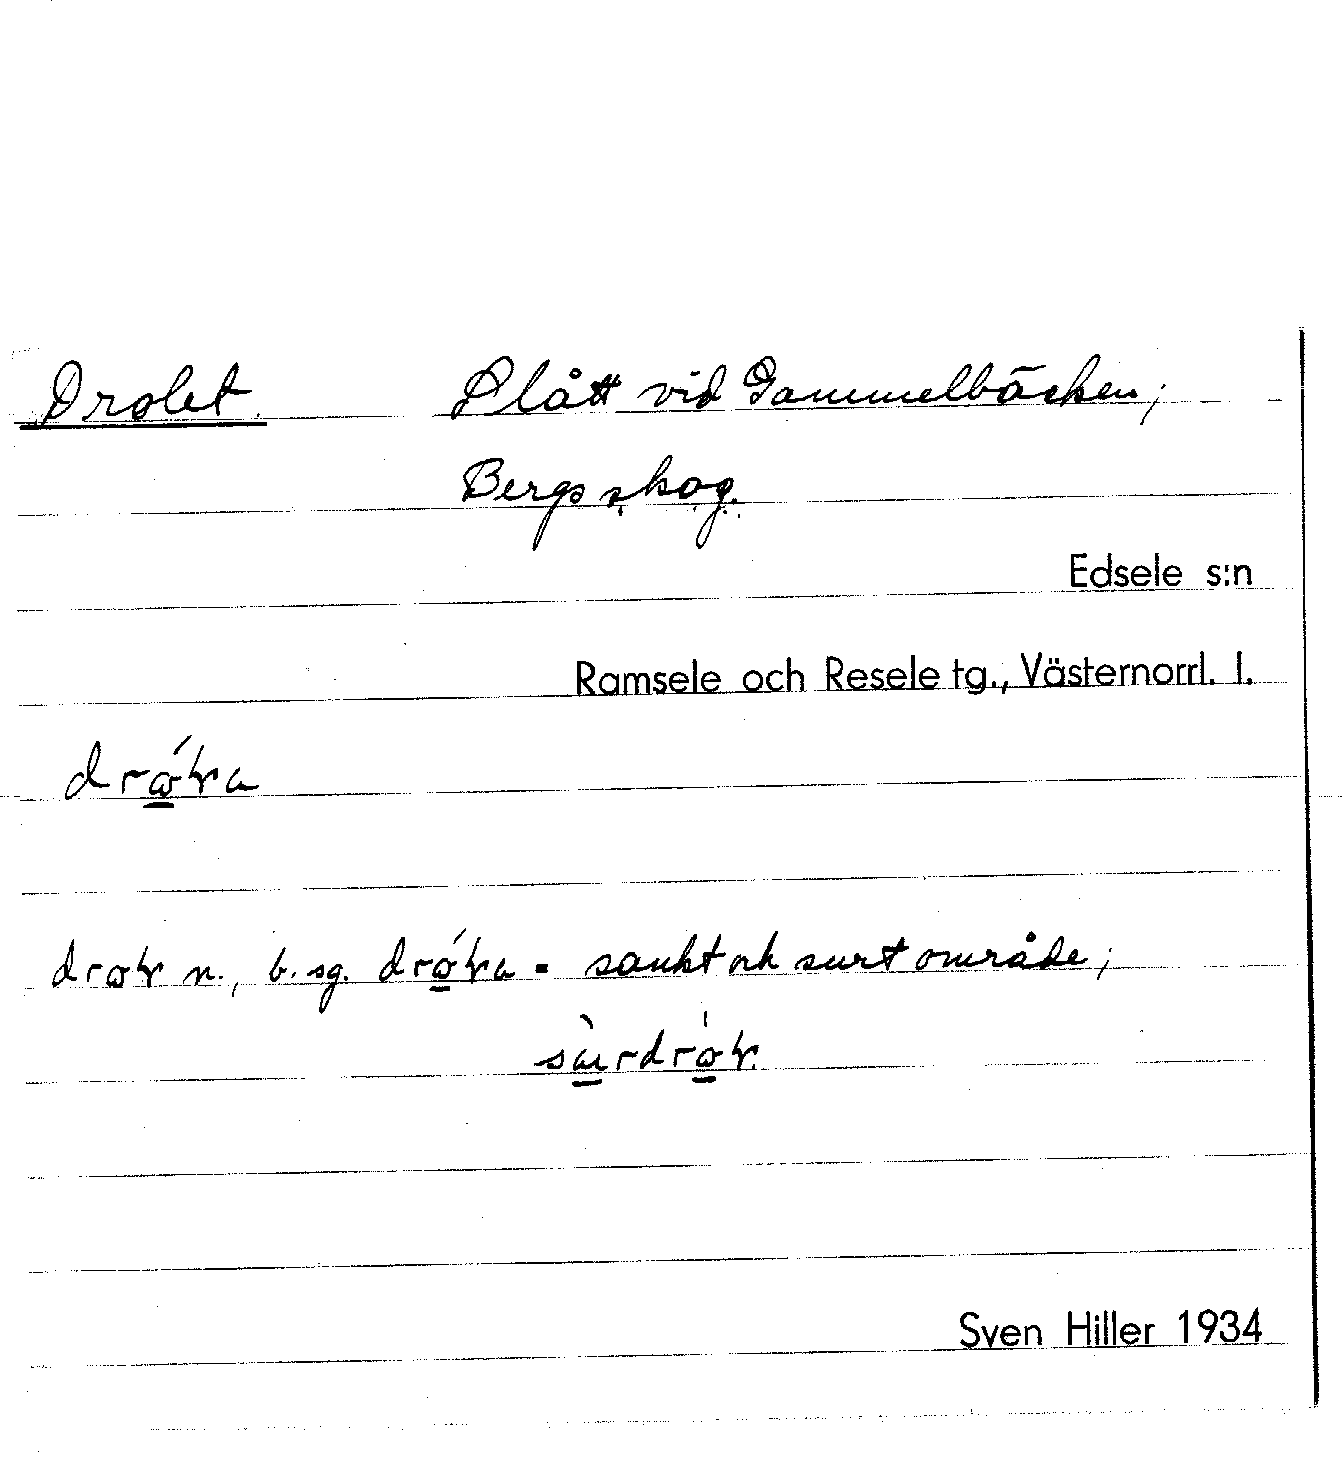 Drolet Slått vid Gammelbäcken;
Bergs skog.
Edsele s:n
Ramsele och Resele tg., Västernorrl. l.
n., b. sg. = sankt och surt område;
Sven Hiller 1934